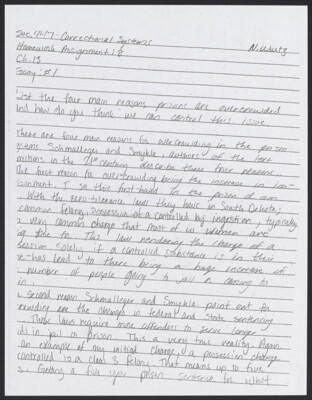 Soc. 447: Correctional Systems
N. Wurtz
Homework Assignment 18
Ch. 13
Essay #1
List the four main reasons prisons are overcrowded
and how do you think we can control this issue
There are four main reasons for overcrowding in the prison
systems. Schmalleger and Smykla, authors of the text
Corrections in the 21st century describe these four reasons.
The first reason for overcrowding being the increase in
. I see this first hand in the prison I am
. With the zero tolerance laws they have in South Dakota;
common felony, possession of a controlled by ingestion, typically
very common charge that most of us women are
for. This law rendering the charge of a
session solely if a controlled substance is in their
has lead to there being a huge increase of
number of people going to jail or coming to
in.
second reason Schmalleger and Smykla point out for
crowding are the changes in federal and state sentencing
. These laws require more offenders to serve longer
in jail or prison. This a very true reality. Again
an example of my initial charge, a possession charge
controlled is a class 5 felony. That means up to five
. Getting a full five year prison sentence for what